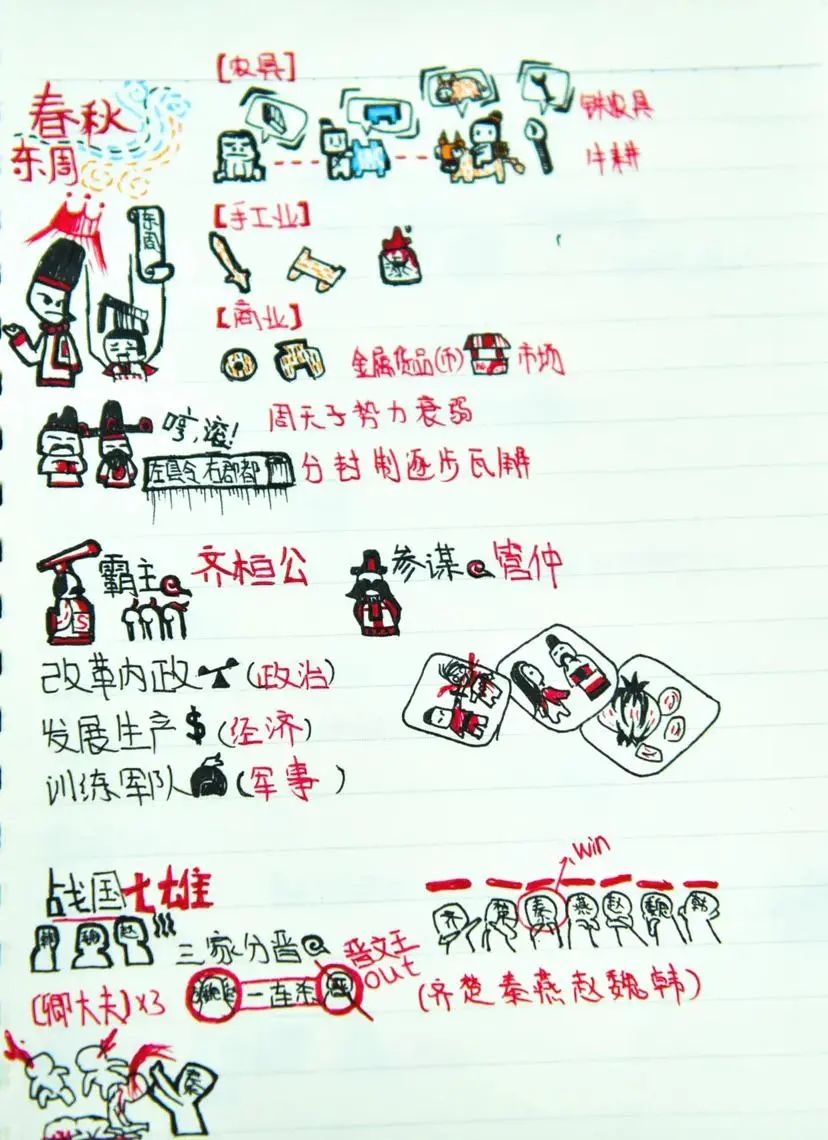 春秋
东周
【农具】
铁农具
牛耕
东周
【手工业】
【商业】
金属货品(币)
市场
哼,滚!
周天子势力衰弱
左县令右郡都
分封制逐步瓦解
霸主 齐桓公
S
参谋 管仲
改革内政(政治)
发展生产$(经济)
训练军队(军事)
战国七雄
win
齐 楚 秦 燕 赵 魏 韩
韩 魏 赵
三家分晋
晋文王
out
(卿大夫)x3
一连杀
(齐楚秦燕赵魏韩)
秦